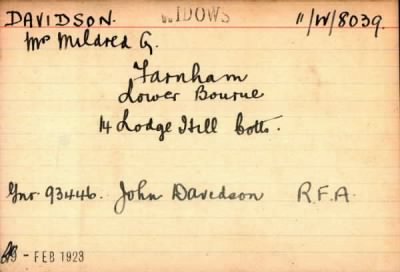 DAVIDSON. WIDOWS 11/W/8039.
Mrs Mildred G.
Farnham
Lower Bourne
14 Lodge Hill Cotts.
Gnr 93446. John Davidson R.F.A.
9 - FEB 1923